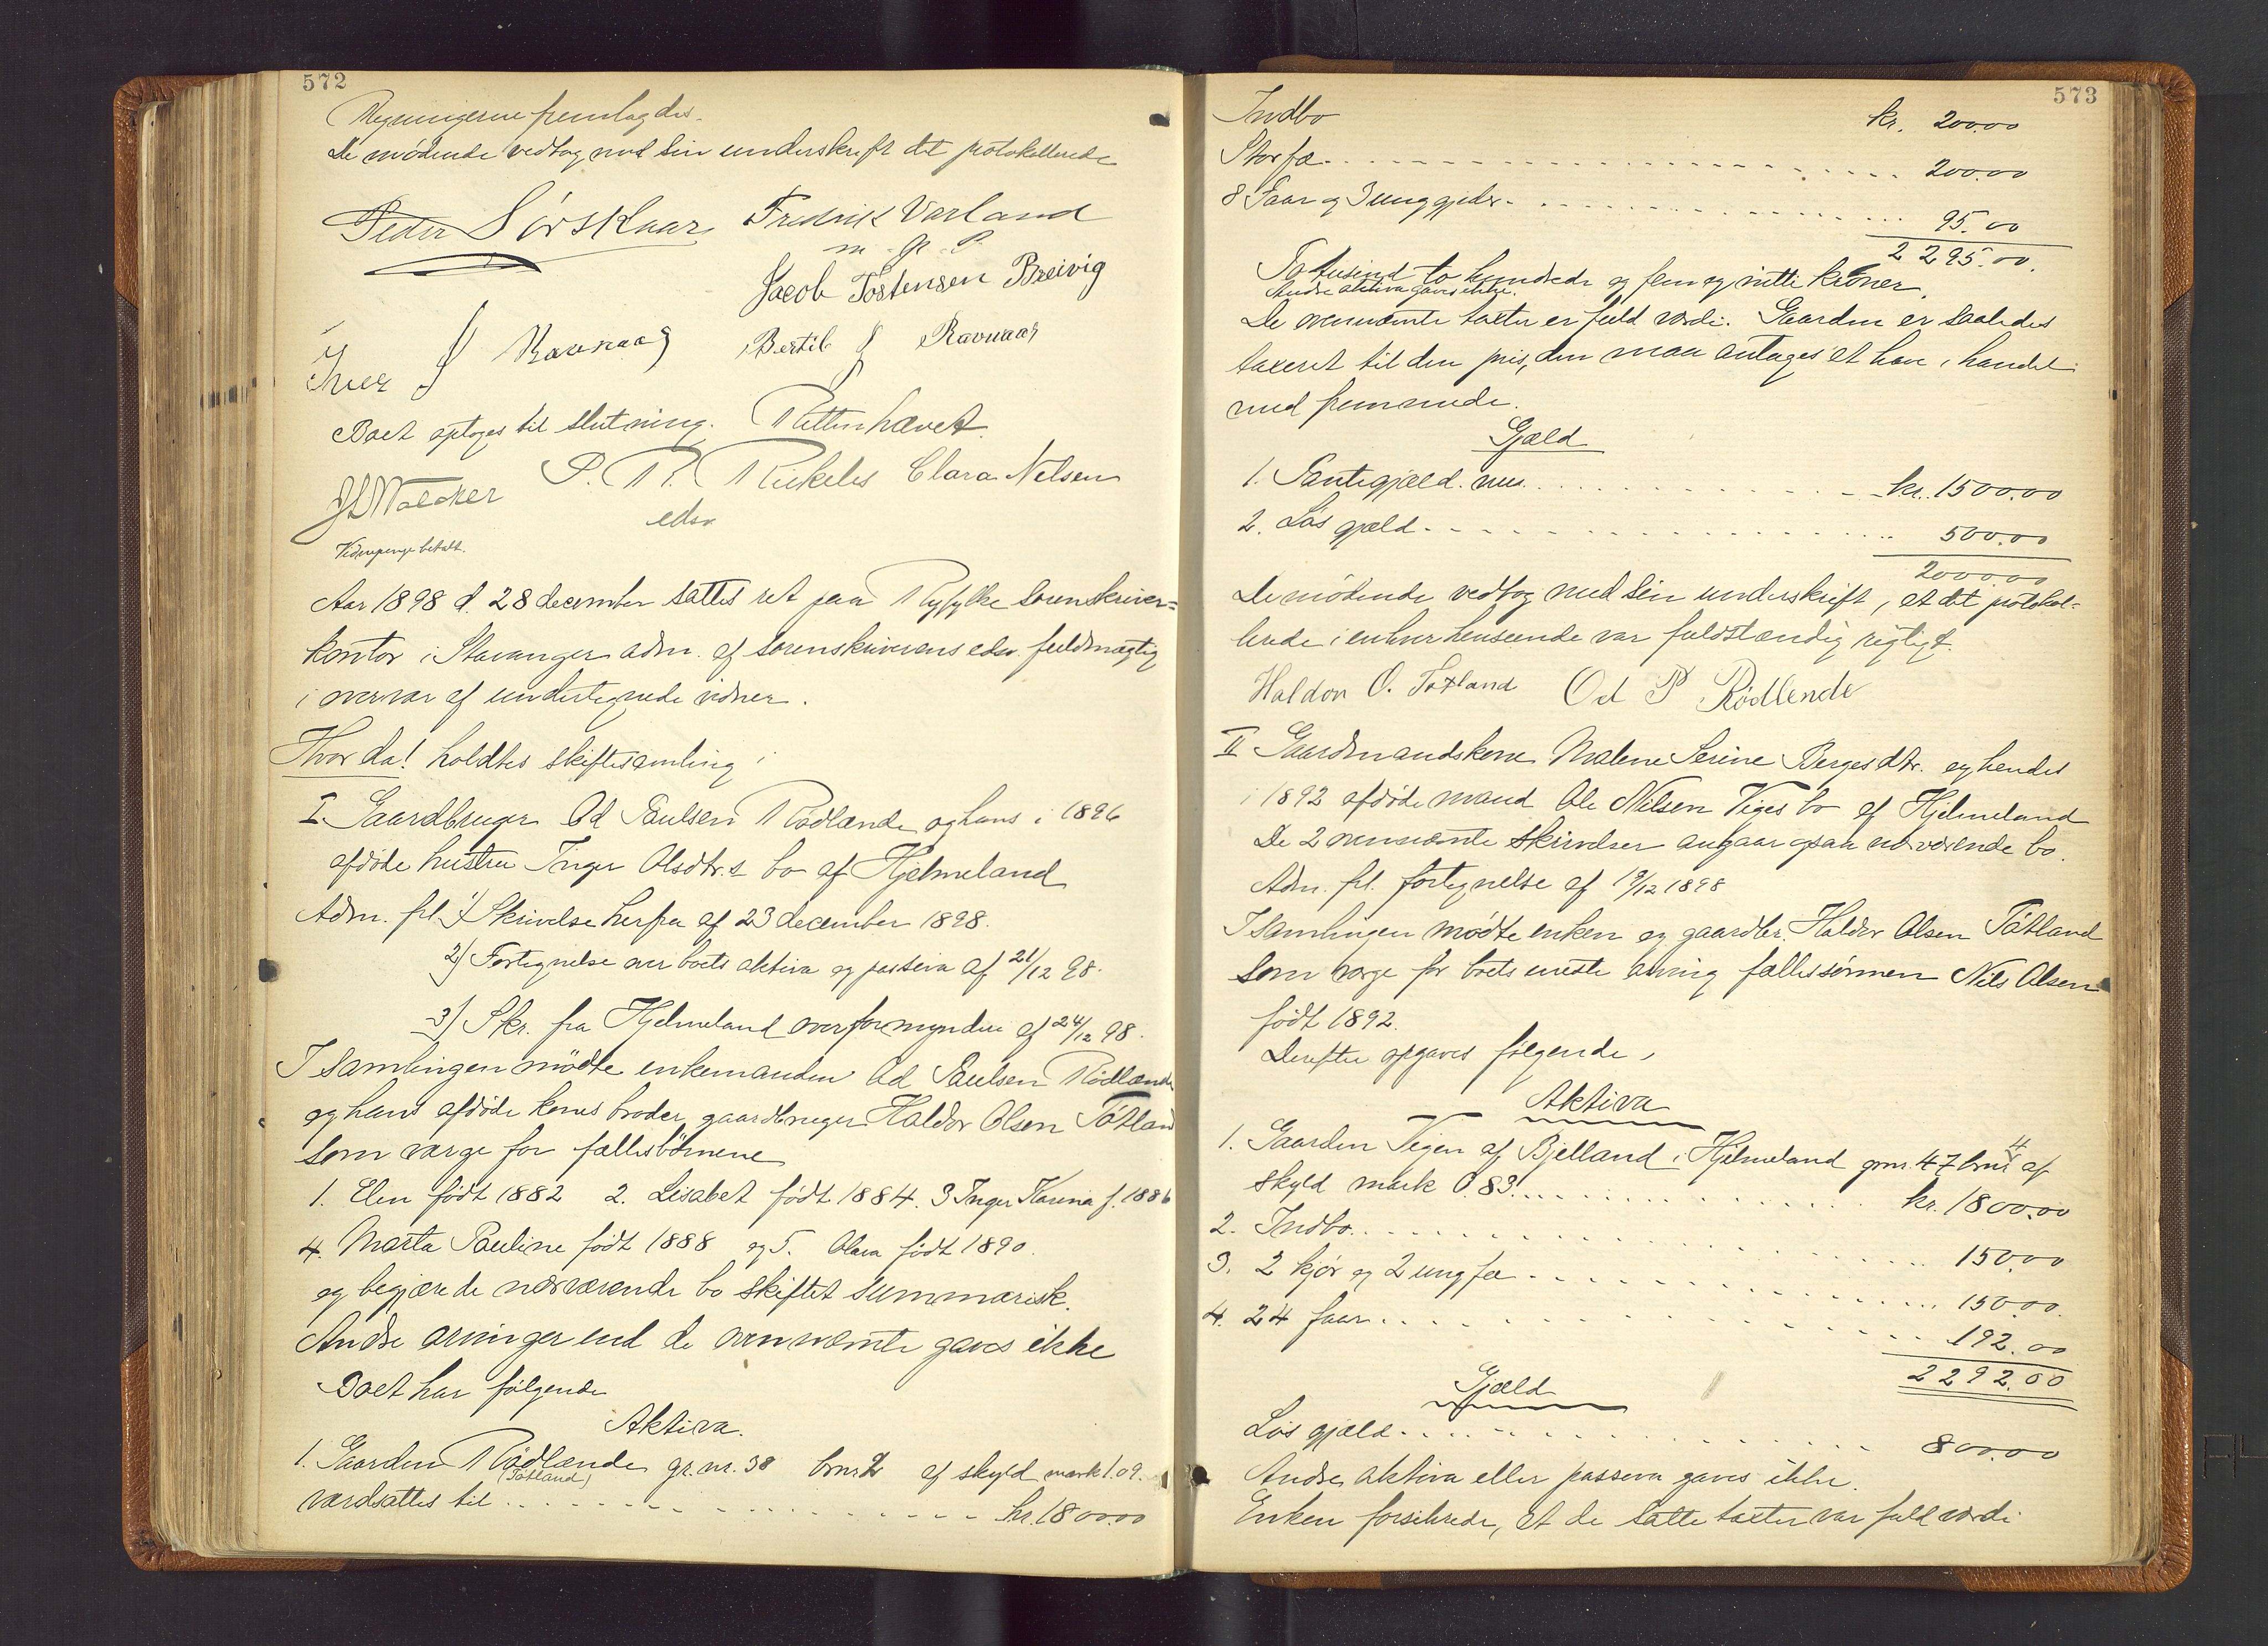 572
Regningerne fremlagdes.
De mødende vedtog med sin underskrift det protokollerede
Peder Sørskaar Fredrik Varland
m. p. P.
Jacob Tostensen Breivig
Iver J Ravnaas Bertil J Ravnaas
Boet optoges til slutning. Retten hævet.
P. M. Mikeles Clara Nelsen
edsv.
Vidnepenge betalt.
Aar 1898 d. 28 december sattes ret paa Ryfylke sorenskriver=
kontor i Stavanger adm. af sorenskriverens edsv. fuldmægtig
i overvær af undertegnede vidner.
Hvorda! holdtes skiftesamling i
I. Gaardbruger Od Paulsen Rødlende og hans i 1896
afdøde hustru Inger Olsdtr.s bo af Hjelmeland
Adm. frl. 1) Skrivelse herfra af 23 december 1898.
2) Fortegnelse over boets aktiva og passiva af 21/12 98.
3) Skr. fra Hjelmeland overformynderi af 24/12 98.
I samlingen mødte enkemanden Od Paulsen Rødlende
og hans afdøde kones broder gaardbruger Haldor Olsen Tøtland
som værge for fællesbørnene
1. Elen født 1882 2. Lisabet født 1884. 3 Inger Karina f. 1886
4. Marta Pauline født 1888 og 5. Olava født 1890.
og begjærede nærværende bo skiftet summarisk.
Andre arvinger end de ovennævnte gaves ikke
Boet har følgende
Aktiva.
1. Gaarden Rødlende gr.nr. 38 brnr 2 af skyld mark 1.09.
(Tøtland)
værdsattes til kr. 1800.00
573
Indbo kr. 200.00
Storfæ 200.00
8 Faar og 3 unggjeder 95.00
2 295.00.
To tusind to hundrede og fem og nitti kroner.
Andre aktiva gaves ikke.
De ovennævnte taxter er fuld værdi. Gaarden er saaledes
taxeret til den pris, den maa antages at have i handel
med fremmede.
Gjæld
1. Pantegjæld kr. 1500.00
2. Løs gjæld 500.00
2000.00
De mødende vedtog med sin underskrift, at det protokol=
lerede i enhver henseende var fuldstændig rigtigt.
Haldor O. Tøtland Od P Rødlende
II Gaardmandskone Malene Serine Bergesdtr. og hendes
i 1892 afdøde mand Ole Nilsen Vigesbo af Hjelmeland
De 2 ovennævnte skrivelser angaar ogsaa nærværende bo.
Adm. frl. fortegnelse af 19/12 1898
I samlingen mødte enken og gaardbr. Haldor Olsen Tøtland
som værge for boets eneste arving fællessønnen Nils Olsen
født 1892.
Derefter opgaves følgende
Aktiva
1. Gaarden Vigen af Bjelland i Hjelmeland grnr. 47 brnr 4 af
skyld mark 0.83 kr. 1800.00
2. Indbo 150.00
3. 2 kjør og 2 ungfæ 150.00
4. 24 faar 192.00
2292.00
Gjæld
Løs gjæld 800.00
Andre aktiva eller passiva gaves ikke.
Enken forsikrede, at de satte taxter var fuld værdi